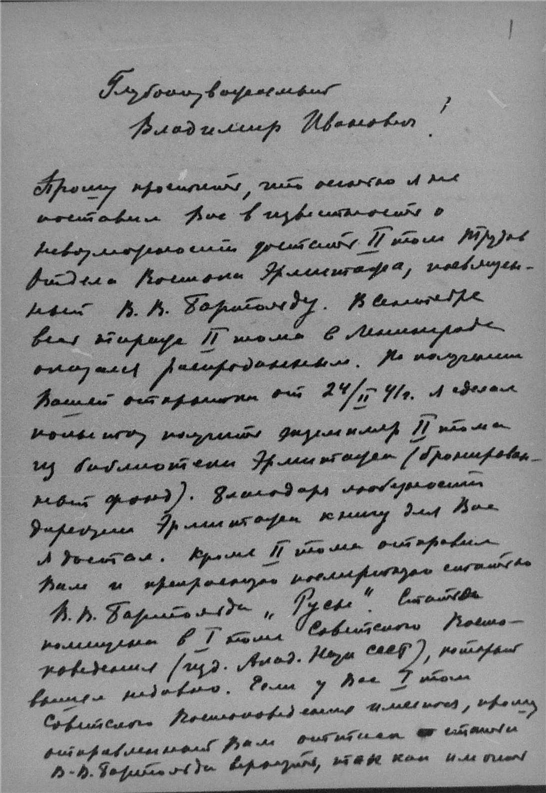 1
Глубокоуважаемый
Владимир Иванович!
Прошу простить, что осенью я не
поставил Вас в известность о
невозможности достать II том Трудов
Отдела Востока Эрмитажа, посвящен-
ный В. В. Бартольду. В сентябре
весь тираж II тома в Ленинграде
оказался распроданным. По получении
Вашей открытки от 24/II 41 г. я сделал
попытку получить экземпляр II тома
из библиотеки Эрмитажа (бронирован-
ный фонд). Благодаря любезности
дирекции Эрмитажа книгу для Вас
я достал. Кроме II тома отправил
Вам и прекрасную посмертную статью
В. В. Бартольда „Русы“. Статья
помещена в I томе Советского Восто-
коведения (изд. Акад. Наук СССР), который
вышел недавно. Если у Вас I том
Советского Востоковедения имеется, прошу
отправленный Вам оттиск статьи
В. В. Бартольда вернуть, так как им очень